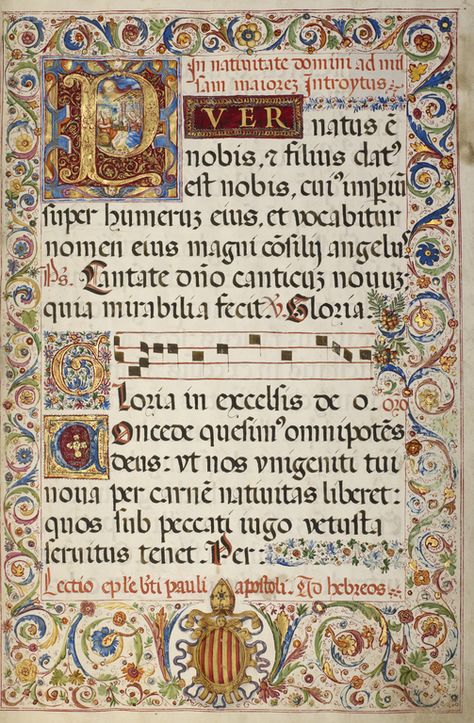 In natiuitate domini ad mis
sam maiorez Introytus
PVER
natus ē
nobis, & filius dat'
est nobis, cui' impiũ
super humeruz eius, et vocabitur
nomen eius magni cōsilij angelu'
Ps. Cantate dño canticuz nouuz
quia mirabilia fecit. V. Gloria.
Gloria in excelsis de o. oro
Concede quesim' omnipotēs
deus: vt nos vnigeniti tui
noua per carnē natiuitas liberet:
quos sub peccati iugo vetusta
seruitus tenet. Per:
Lectio epl'e b'ti pauli apostoli. Ad hebreos